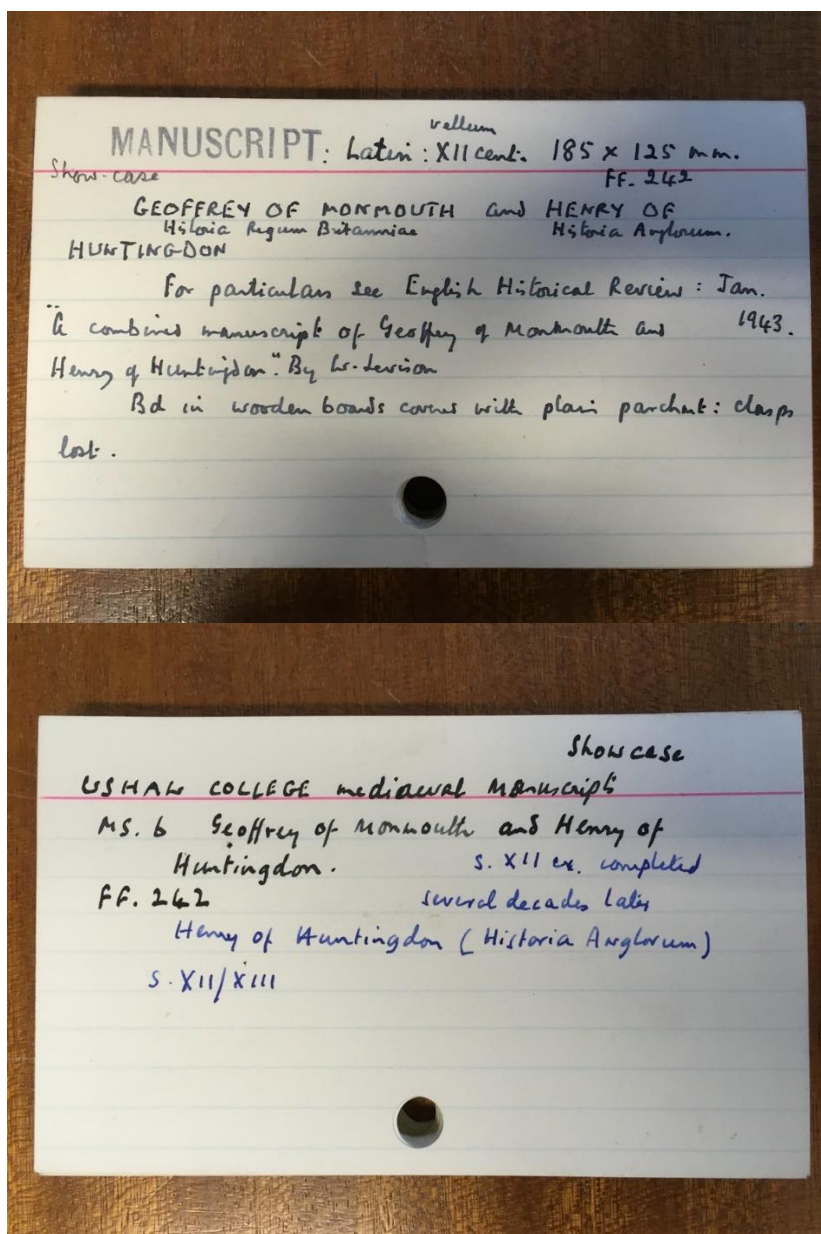 vellum
MANUSCRIPT: Latin: XII cent. 185 x 125 mm.
Show-case FF. 242
GEOFFREY OF MONMOUTH and HENRY OF
Historia Regum Britanniae Historia Anglorum.
HUNTINGDON
For particulars see English Historical Review: Jan.
"A combined manuscript of Geoffrey of Monmouth and 1943.
Henry of Huntingdon". By W. Levison
Bd in wooden boards covered with plain parchmt: clasps
lost.
Showcase
USHAW COLLEGE mediaeval Manuscripts
MS. 6 Geoffrey of Monmouth and Henry of
Huntingdon. S. XII ex. completed
FF. 242 several decades later
Henry of Huntingdon (Historia Anglorum)
S. XII/XIII